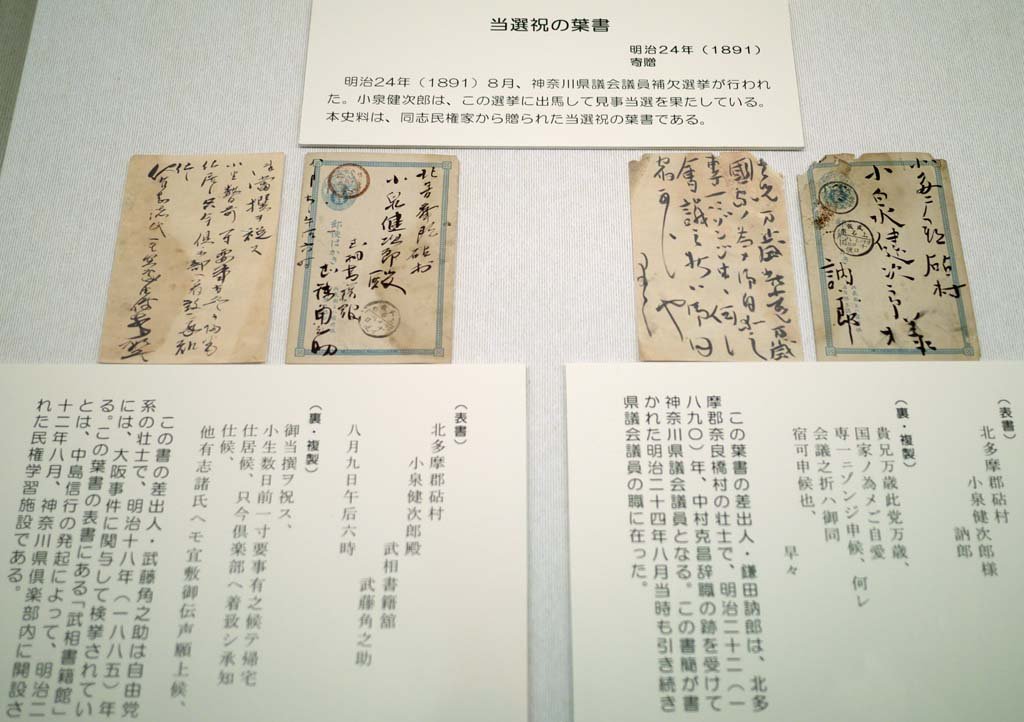 当選祝の葉書
明治24年（1891）
寄贈
明治24年（1891）8月、神奈川県議会議員補欠選挙が行われ
た。小泉健次郎は、この選挙に出馬して見事当選を果たしている。
本史料は、同志民権家から贈られた当選祝の葉書である。
小泉健次郎様
訥郎
北多摩郡砧村
小泉健次郎殿
武相書籍館
武藤角之助
郵便はかき
（表書）
北多摩郡砧村
小泉健次郎様
訥郎
（裏・複製）
貴兄万歳此党万歳、
国家ノ為メご自愛
専一ニゾンジ申候、何レ
会議之折ハ御同
宿可申候也、
早々
この葉書の差出人・鎌田訥郎は、北多
摩郡奈良橋村の壮士で、明治二十二（一
八九〇）年、中村克昌辞職の跡を受けて
神奈川県議会議員となる。この書簡が書
かれた明治二十四年八月当時も引き続き
県議会議員の職に在った。
（表書）
北多摩郡砧村
小泉健次郎殿
武相書籍館
武藤角之助
八月九日午后六時
（裏・複製）
御当撰ヲ祝ス、
小生数日前一寸要事有之候テ帰宅
仕居候、只今倶楽部へ着致シ承知
仕候、
他有志諸氏ヘモ宜敷御伝声願上候、
この書の差出人・武藤角之助は自由党
系の壮士で、明治十八年（一八八五）年
には、大阪事件に関与して検挙されてい
る。この葉書の表書にある「武相書籍館」
とは、中島信行の発起によって、明治二
十二年八月、神奈川県倶楽部内に開設さ
れた民権学習施設である。